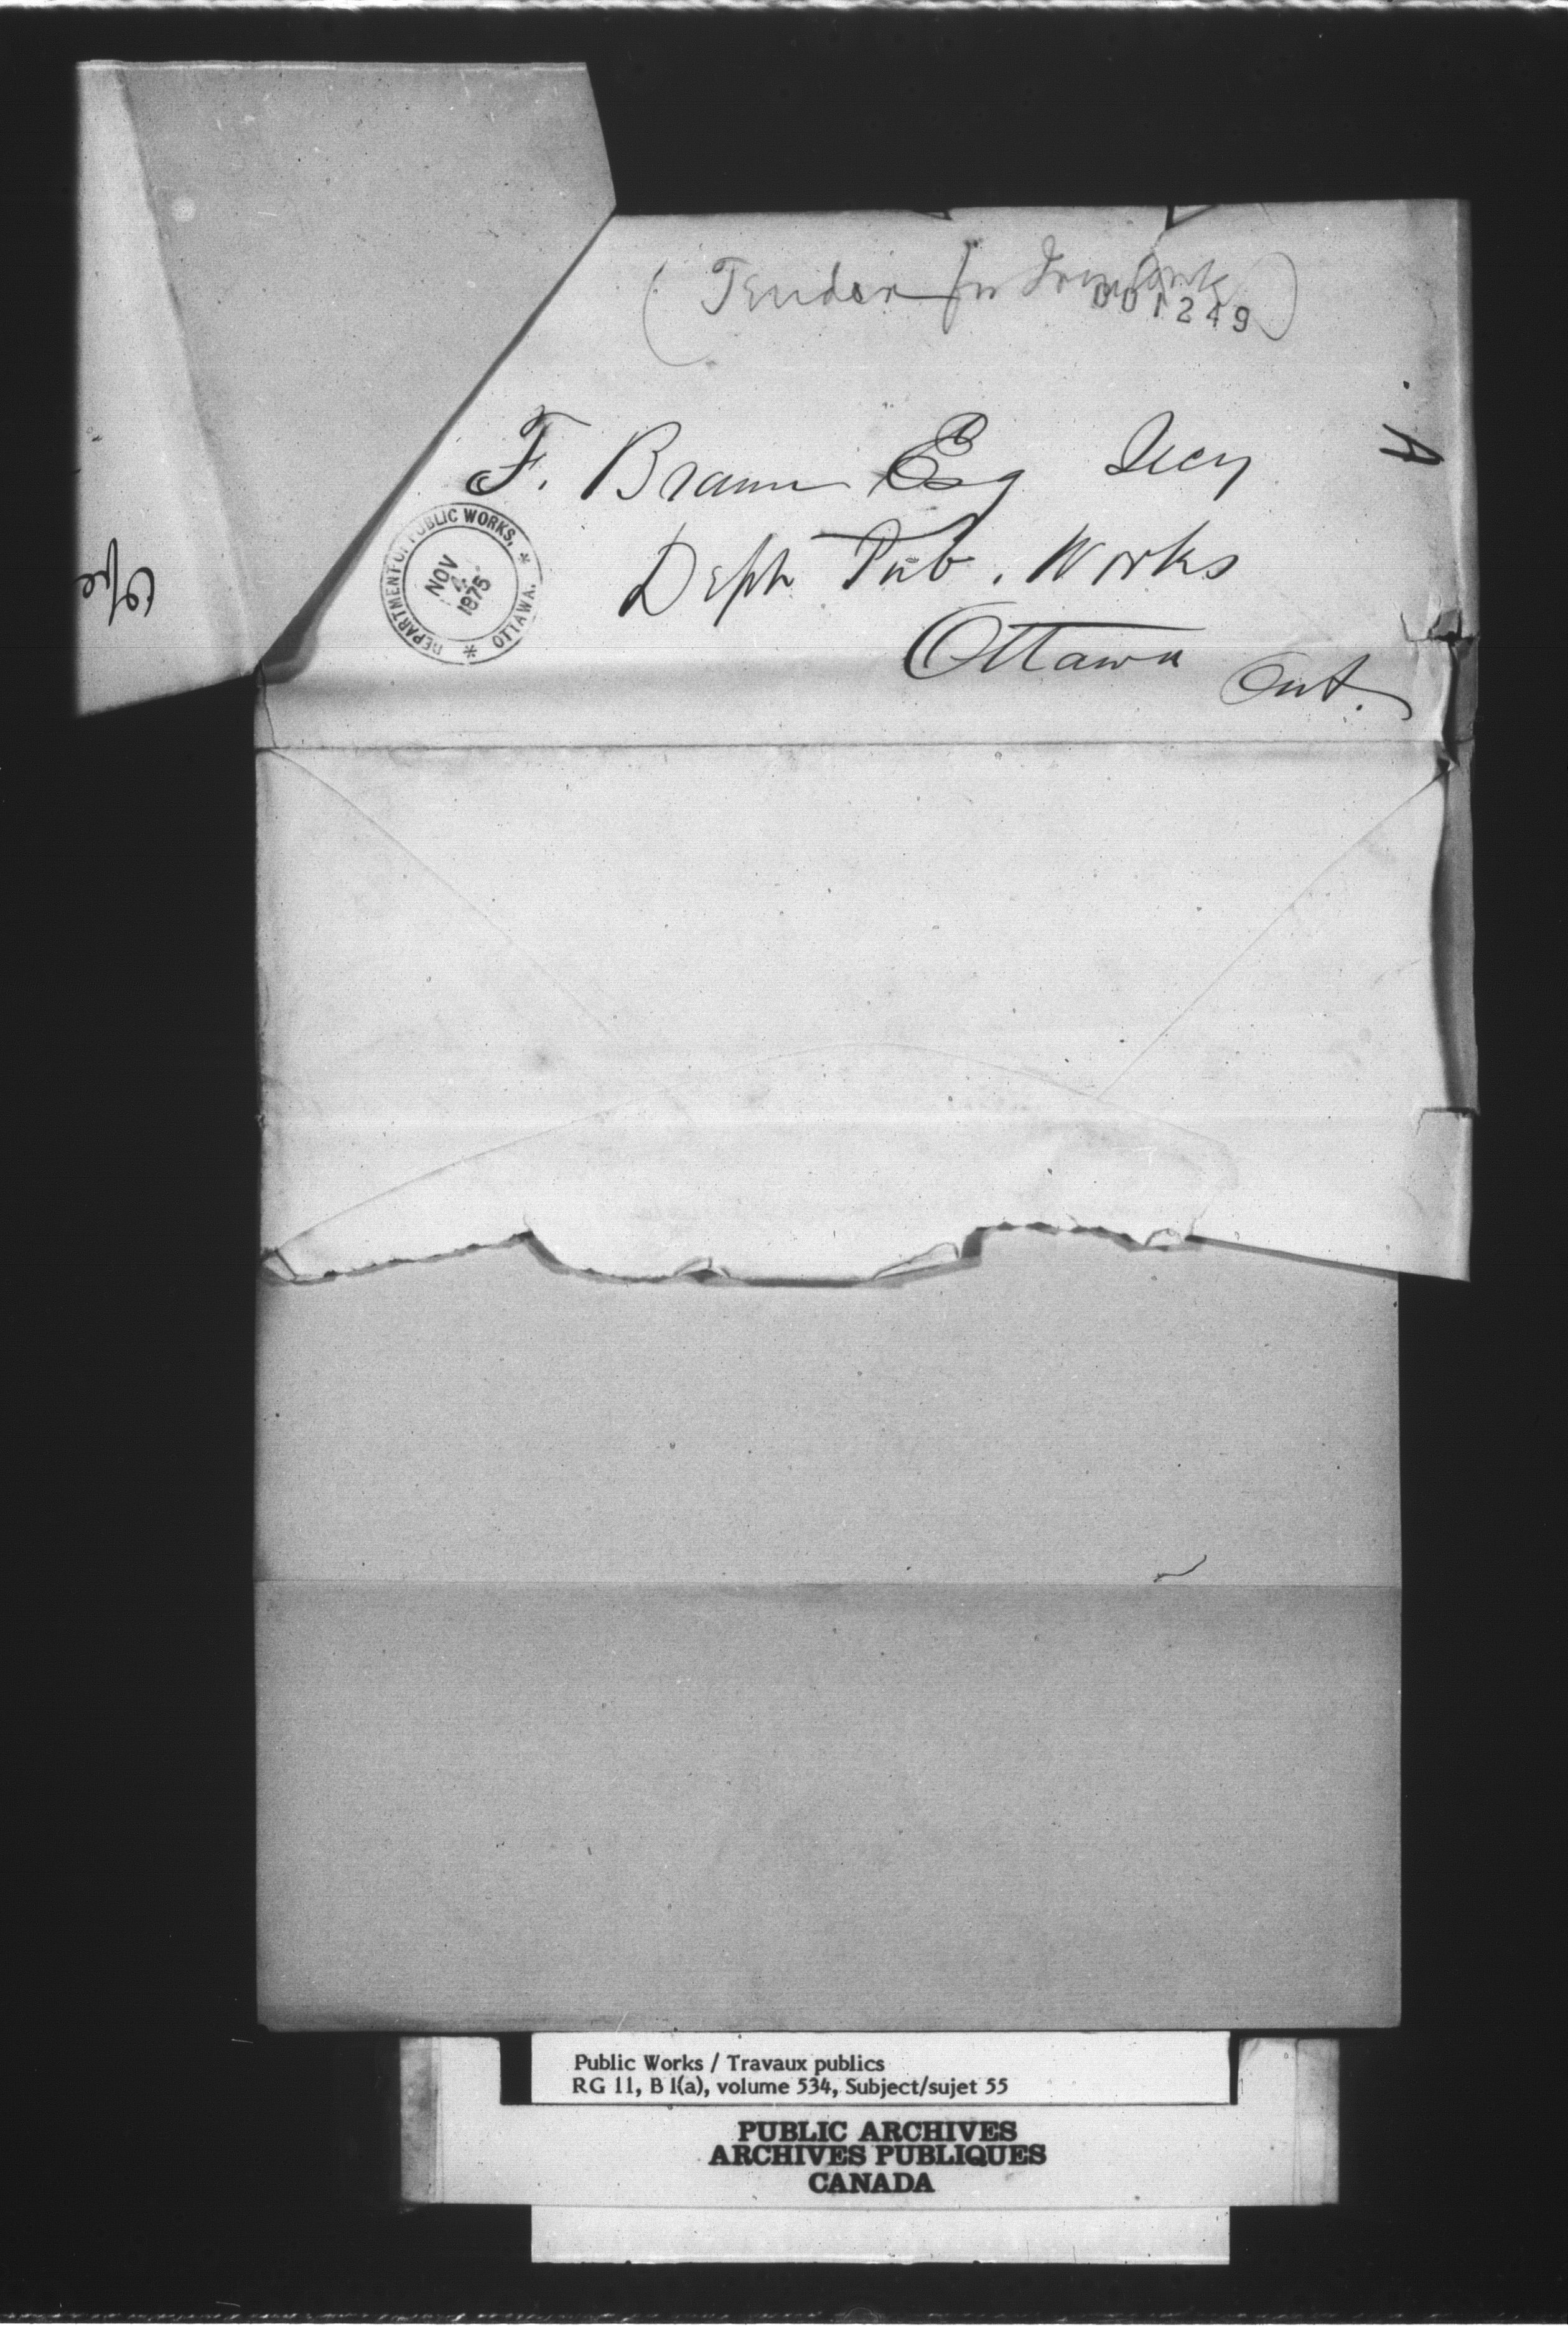 (Tender for Iron Work)
001249
F. Braun Esq Secy
Dept Pub. Works
Ottawa Ont.
DEPARTMENT OF PUBLIC WORKS, * OTTAWA. *
NOV
4
1875
Public Works / Travaux publics
RG 11, B 1(a), volume 534, Subject/sujet 55
PUBLIC ARCHIVES
ARCHIVES PUBLIQUES
CANADA